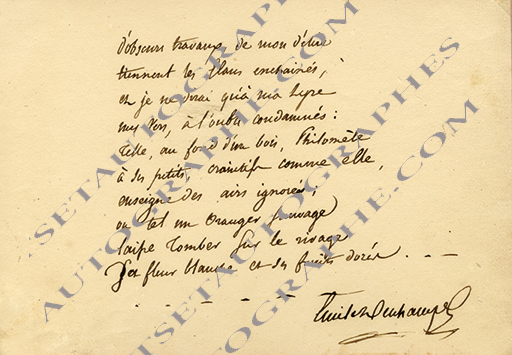 d'obscurs travaux de mon délire
tiennent les élans enchainés,
et je ne dirai qu'à ma lyre
mes vers, à l'oubli condamnés :
telle, au fond d'un bois, Philomèle
à ses petits, craintifs comme elle,
enseigne des airs ignorés ;
ou tel un oranger sauvage
laisse tomber sur le rivage
Sa fleur blanche et ses fruits dorés . - -
- - - -
Emile Deschamps
AUTOGRAPHE.COM
TSETAUTOGRAPHES
AUTOGRAPHE.COM
TSETAUTOGRAPHES
AUTOGRAPHE.COM